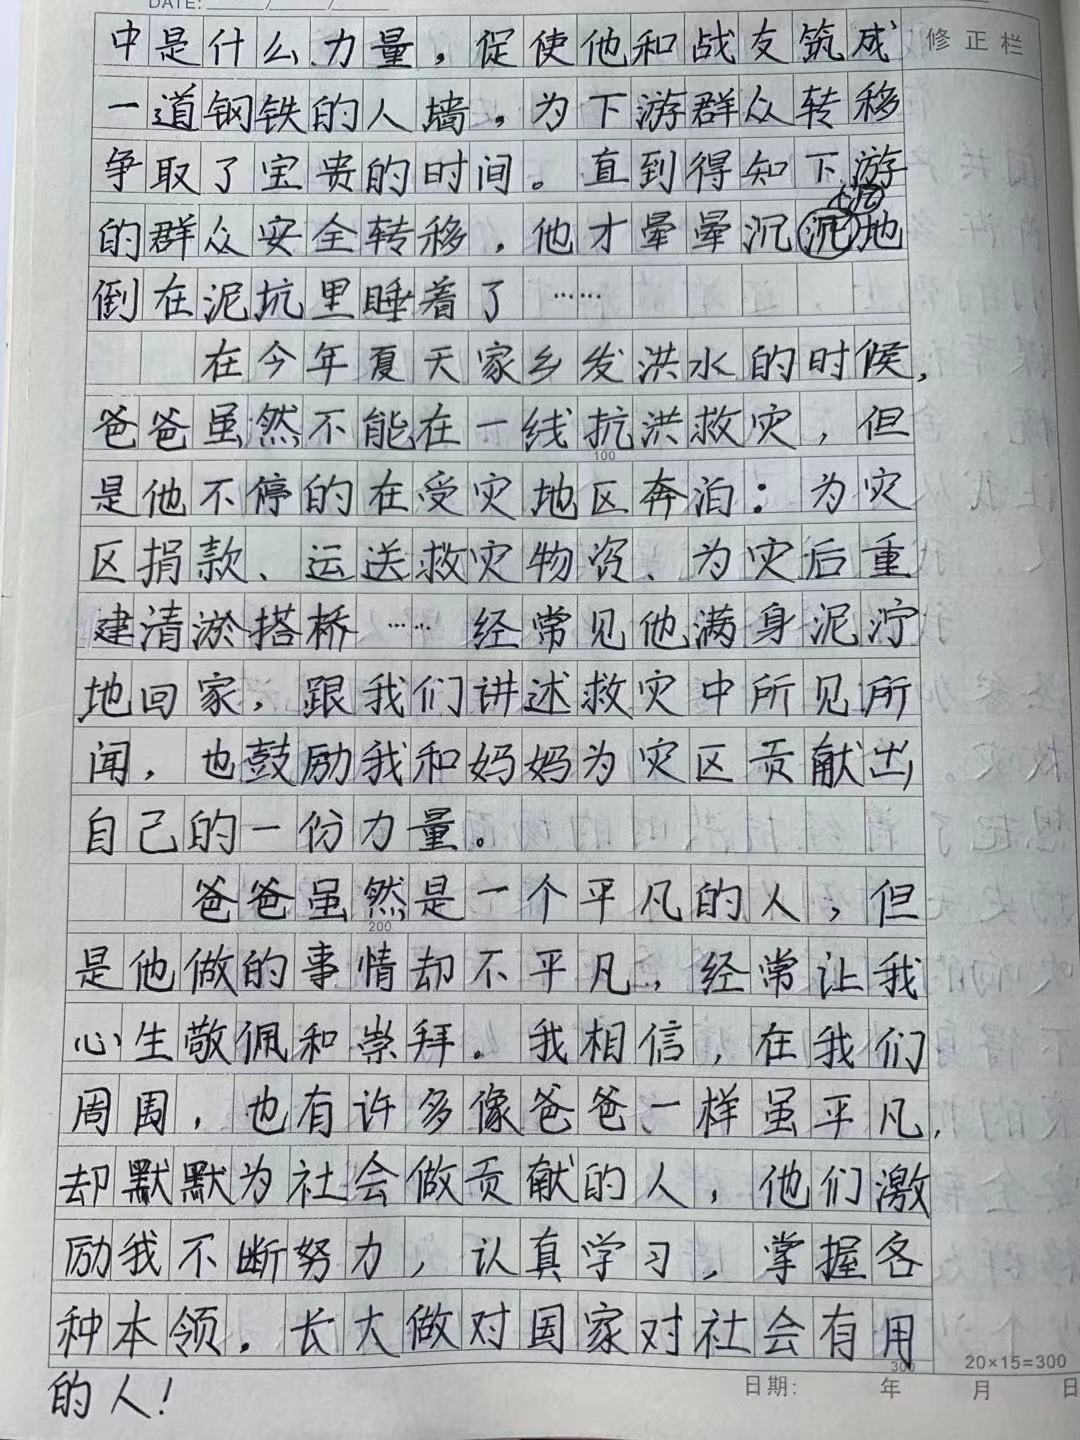 DATE:
修正栏
中是什么力量，促使他和战友筑成
一道钢铁的人墙，为下游群众转移
争取了宝贵的时间。直到得知下游
的群众安全转移，他才晕晕沉沉地
倒在泥坑里睡着了……
在今年夏天家乡发洪水的时候，
爸爸虽然不能在一线抗洪救灾，但
100
是他不停的在受灾地区奔泊：为灾
区捐款、运送救灾物资、为灾后重
建清淤搭桥……经常见他满身泥泞
地回家，跟我们讲述救灾中所见所
闻，也鼓励我和妈妈为灾区贡献出
自己的一份力量。
爸爸虽然是一个平凡的人，但
200
是他做的事情却不平凡，经常让我
心生敬佩和崇拜。我相信，在我们
周围，也有许多像爸爸一样虽平凡，
却默默为社会做贡献的人，他们激
励我不断努力，认真学习，掌握各
种本领。长大做对国家对社会有用
300
20×15=300
的人！
日期： 年 月 日